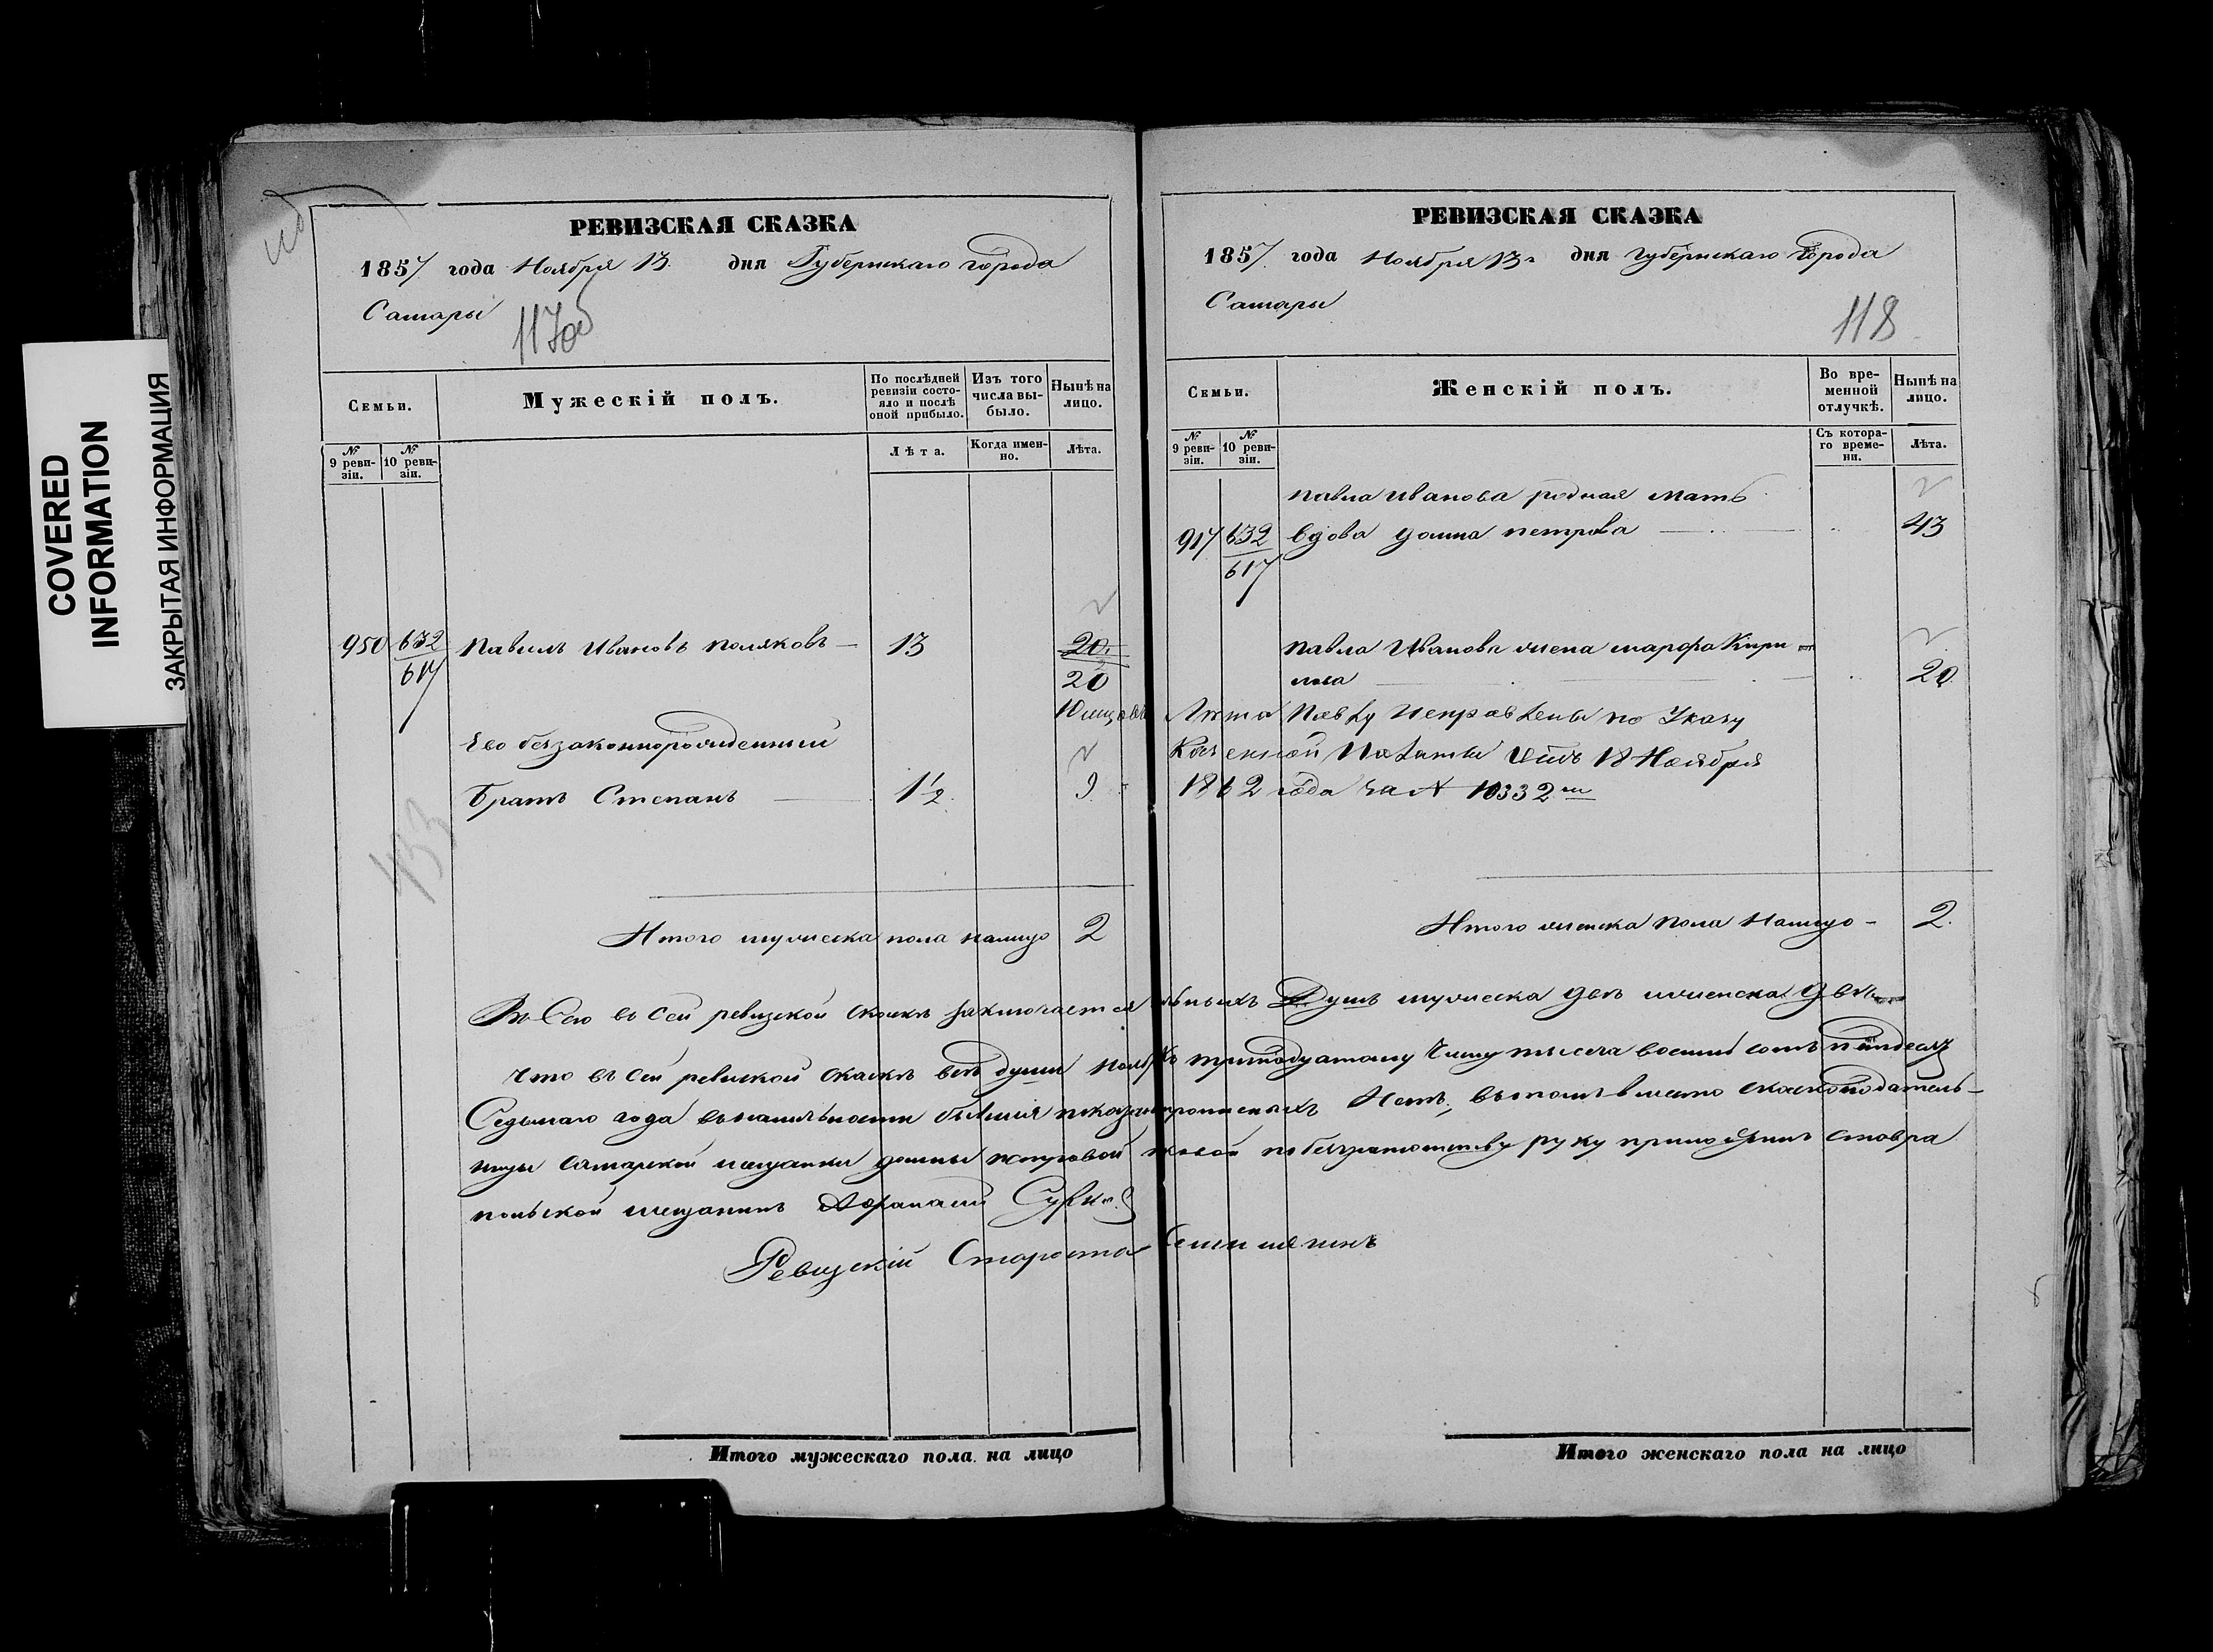 COVERED
INFORMATION
ЗАКРЫТАЯ ИНФОРМАЦИЯ
РЕВИЗСКАЯ СКАЗКА
1857 года Ноября 13. дня Губернскаго города
Самары
117об
Семьи.
Мужескій полъ.
По послѣдней ревизіи состояло и послѣ оной прибыло.
Изъ того числа выбыло.
Нынѣ на лицо.
№ 9 ревизіи.
№ 10 ревизіи.
Лѣта.
Когда именно.
Лѣта.
950 632 Павилъ Ивановъ поляковъ — 13 20.
617 20
Его беззаконнорожденный
Братъ Степанъ — 1 1/2 9
433
Итого мужеска пола налицо 2
Итого мужескаго пола на лицо
РЕВИЗСКАЯ СКАЗКА
1857 года Ноября 13 дня губернскаго города
Самары
118
Семьи.
Женскій полъ.
Во временной отлучкѣ.
Нынѣ на лицо.
№ 9 ревизіи.
№ 10 ревизіи.
Съ котораго времени.
Лѣта.
павла иванова родная мать
917 632 вдова домна петрова — 43
617
павла Иванова жена марфа Кири-
лова 20
Лѣта Павлу исправлены по Указу
Казенной Палаты отъ 18 Ноября
1862 года за № 10332
Итого женска пола налицо - 2.
Всего въ сей ревизской скаскѣ заключается душъ мужеска двѣ женска двѣ
что въ сей ревиской скаскѣ всѣ души тринадцатому числу тысеча восимь сотъ пятдесят
Седьмаго года въ наличности бывшія показаны прописныхъ Нетъ, въ томъ вместо скаскоподатель-
ницы самарской мещанки домны петровой по безграмотству руку приложилъ ставра
польской мещанинъ Афанасій
Ревизскій Староста
Итого женскаго пола на лицо